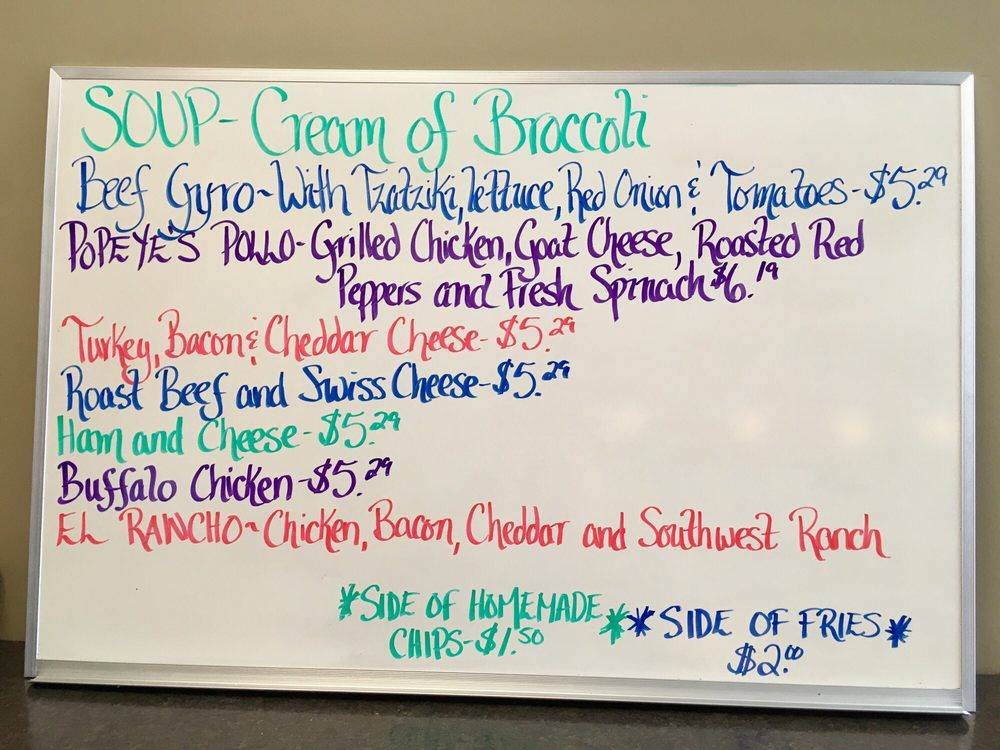 SOUP- Cream of Broccoli
Beef Gyro~With Tzatziki, lettuce, Red Onion & Tomatoes-$5.29
POPEYE'S POLLO-Grilled Chicken, Goat Cheese, Roasted Red
Peppers and Fresh Spinach $6.19
Turkey, Bacon & Cheddar Cheese-$5.29
Roast Beef and Swiss Cheese-$5.29
Ham and Cheese-$5.29
Buffalo Chicken-$5.29
EL RANCHO~Chicken, Bacon, Cheddar and Southwest Ranch
*SIDE OF HOMEMADE*
CHIPS-$1.50
*SIDE OF FRIES*
$2.00